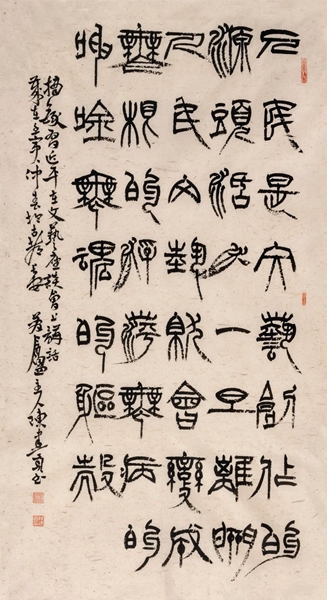 人民是文藝創作的
源頭活水一旦離開
人民文藝就會變成
無根的浮萍無病的
呻吟無魂的軀殼
摘錄習近平在文藝座談會上講話